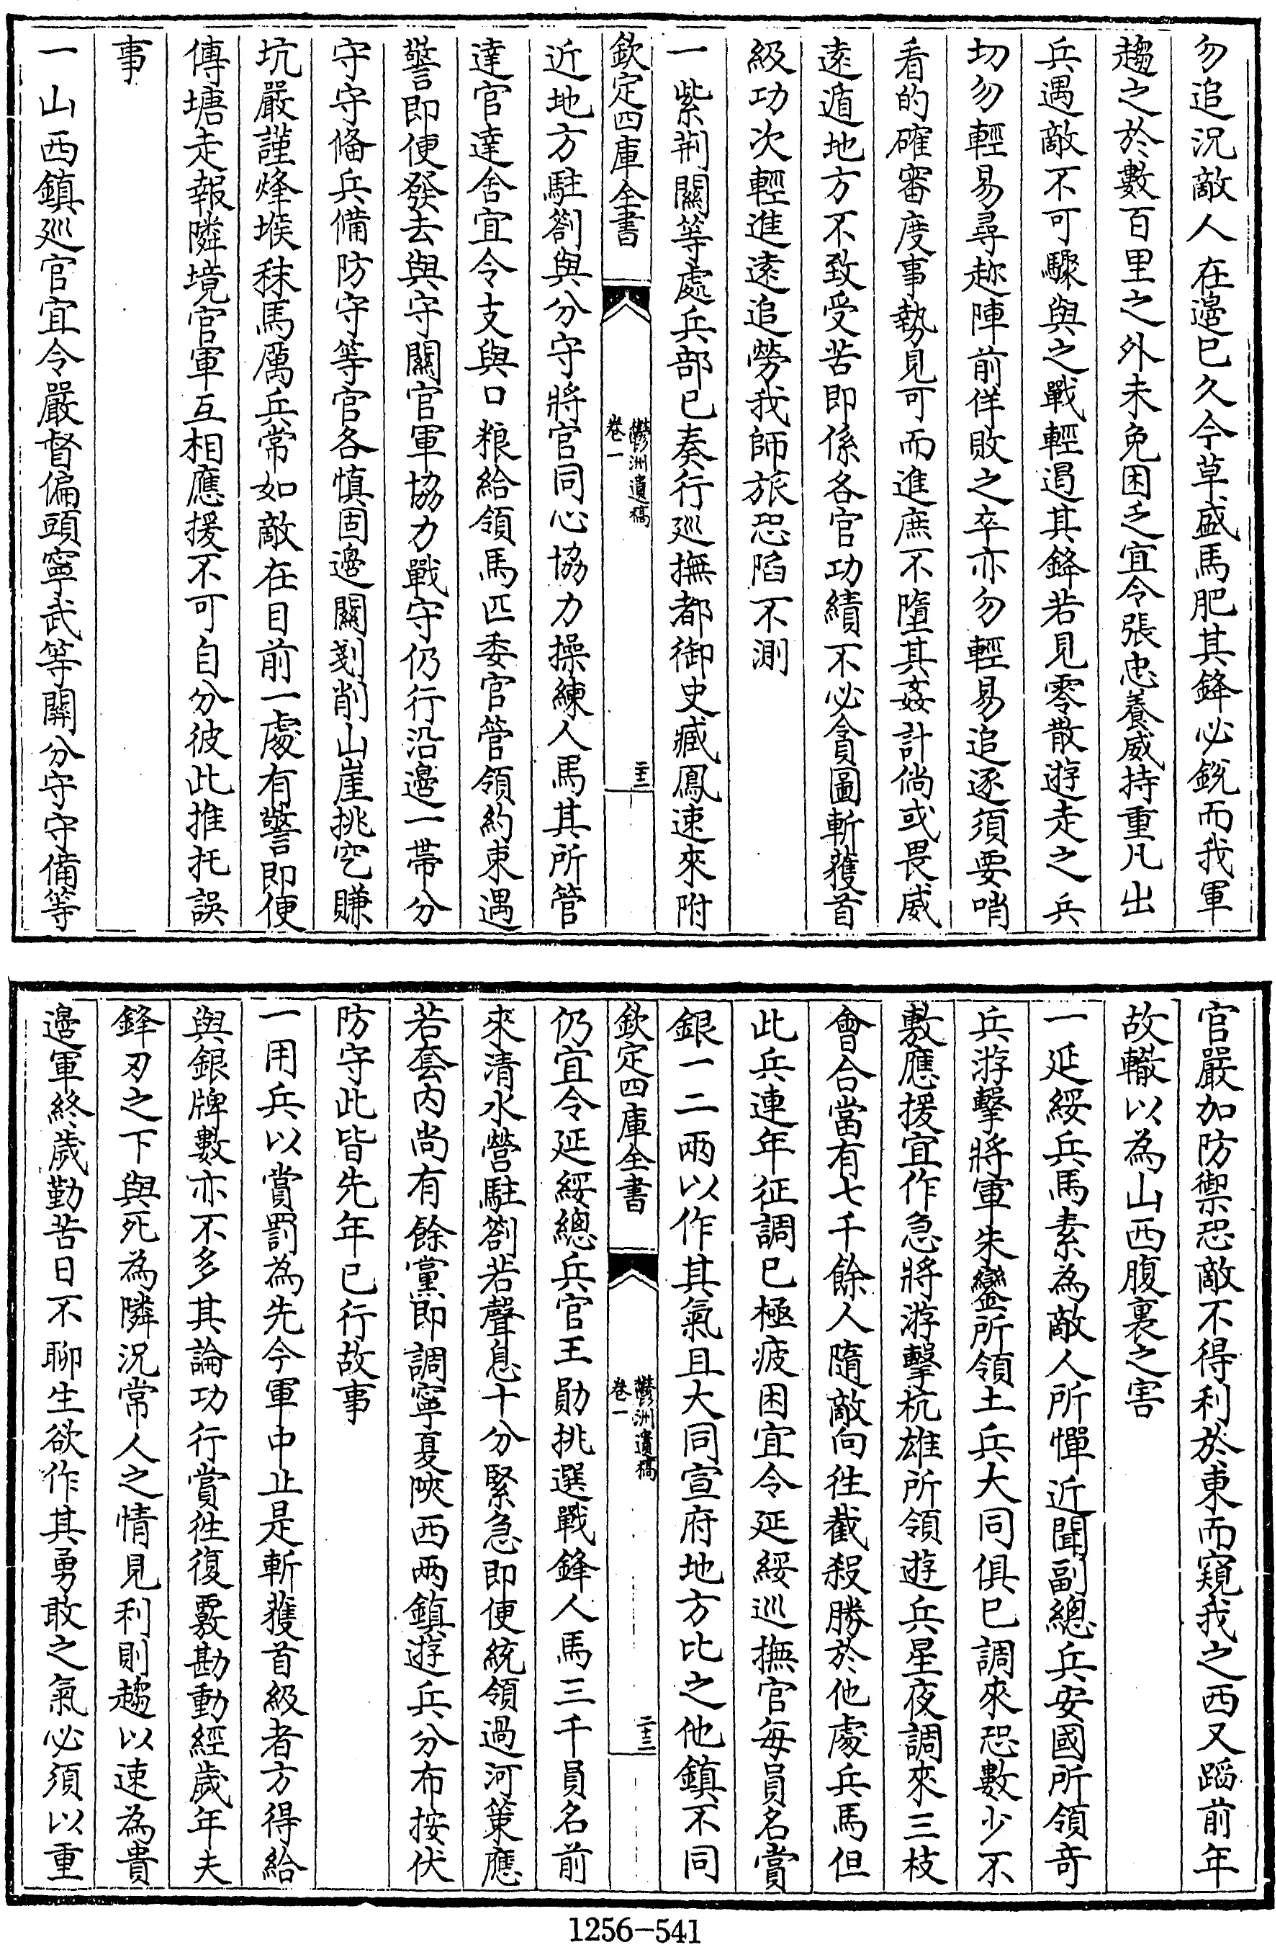 勿追況敵人在邉已久今草盛馬肥其鋒必銳而我軍
趨之於數百里之外未免困乏宜令張忠養威持重凡出
兵遇敵不可驟與之戰輕遏其鋒若見零散遊走之兵
切勿輕易尋趂陣前佯敗之卒亦勿輕易追逐須要哨
看的確審度事勢見可而進庶不墮其姦計倘或畏威
逺遁地方不致受苦即係各官功績不必貪圖斬獲首
級功次輕進逺追勞我師旅恐陷不測
一紫荆關等處兵部已奏行廵撫都御史臧鳳速來附
欽定四庫全書
鬱洲遺稿
卷一
二十二
近地方駐劄與分守將官同心協力操練人馬其所管
達官達舍宜令支與口粮給領馬匹委官管領約束遇
警即便發去與守關官軍協力戰守仍行沿邉一帶分
守守備兵備防守等官各慎固邉關剗削山崖挑空賺
坑嚴謹烽堠秣馬厲兵常如敵在目前一處有警即便
傳塘走報隣境官軍互相應援不可自分彼此推托誤
事
一山西鎮廵官宜令嚴督偏頭寧武等關分守守備等
官嚴加防禦恐敵不得利於東而窺我之西又蹈前年
故轍以為山西腹裏之害
一延綏兵馬素為敵人所憚近聞副總兵安國所領竒
兵游擊將軍朱鑾所領土兵大同俱已調來恐數少不
敷應援宜作急將游擊杭雄所領遊兵星夜調來三枝
會合當有七千餘人隨敵向徃截殺勝於他處兵馬但
此兵連年征調已極疲困宜令延綏巡撫官每員名賞
銀一二兩以作其氣且大同宣府地方比之他鎮不同
欽定四庫全書
鬱洲遺稿
卷一
二十三
仍宜令延綏總兵官王勛挑選戰鋒人馬三千員名前
來清水營駐劄若聲息十分緊急即便統領過河策應
若套内尚有餘黨即調寧夏陜西兩鎮遊兵分布按伏
防守此皆先年已行故事
一用兵以賞罰為先今軍中止是斬獲首級者方得給
與銀牌數亦不多其論功行賞徃復覈勘動經歲年夫
鋒刃之下與死為隣況常人之情見利則趨以速為貴
邉軍終歲勤苦日不聊生欲作其勇敢之氣必須以重
1256-541